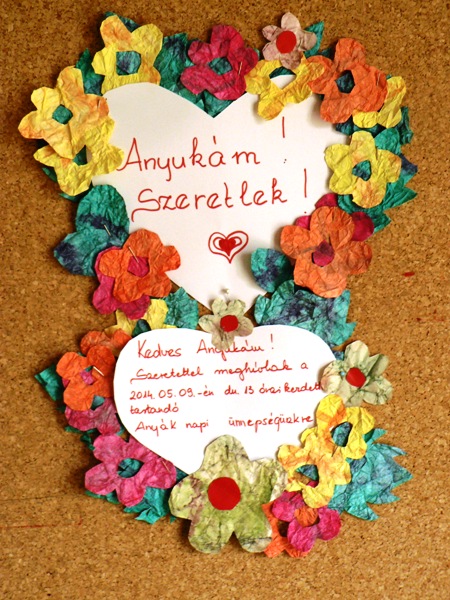 Anyukám !
Szeretlek !
Kedves Anyukám !
Szeretettel meghívlak a
2014.05.09.-én du. 15 órai kezdettel
tartandó
Anyák napi ünnepségünkre